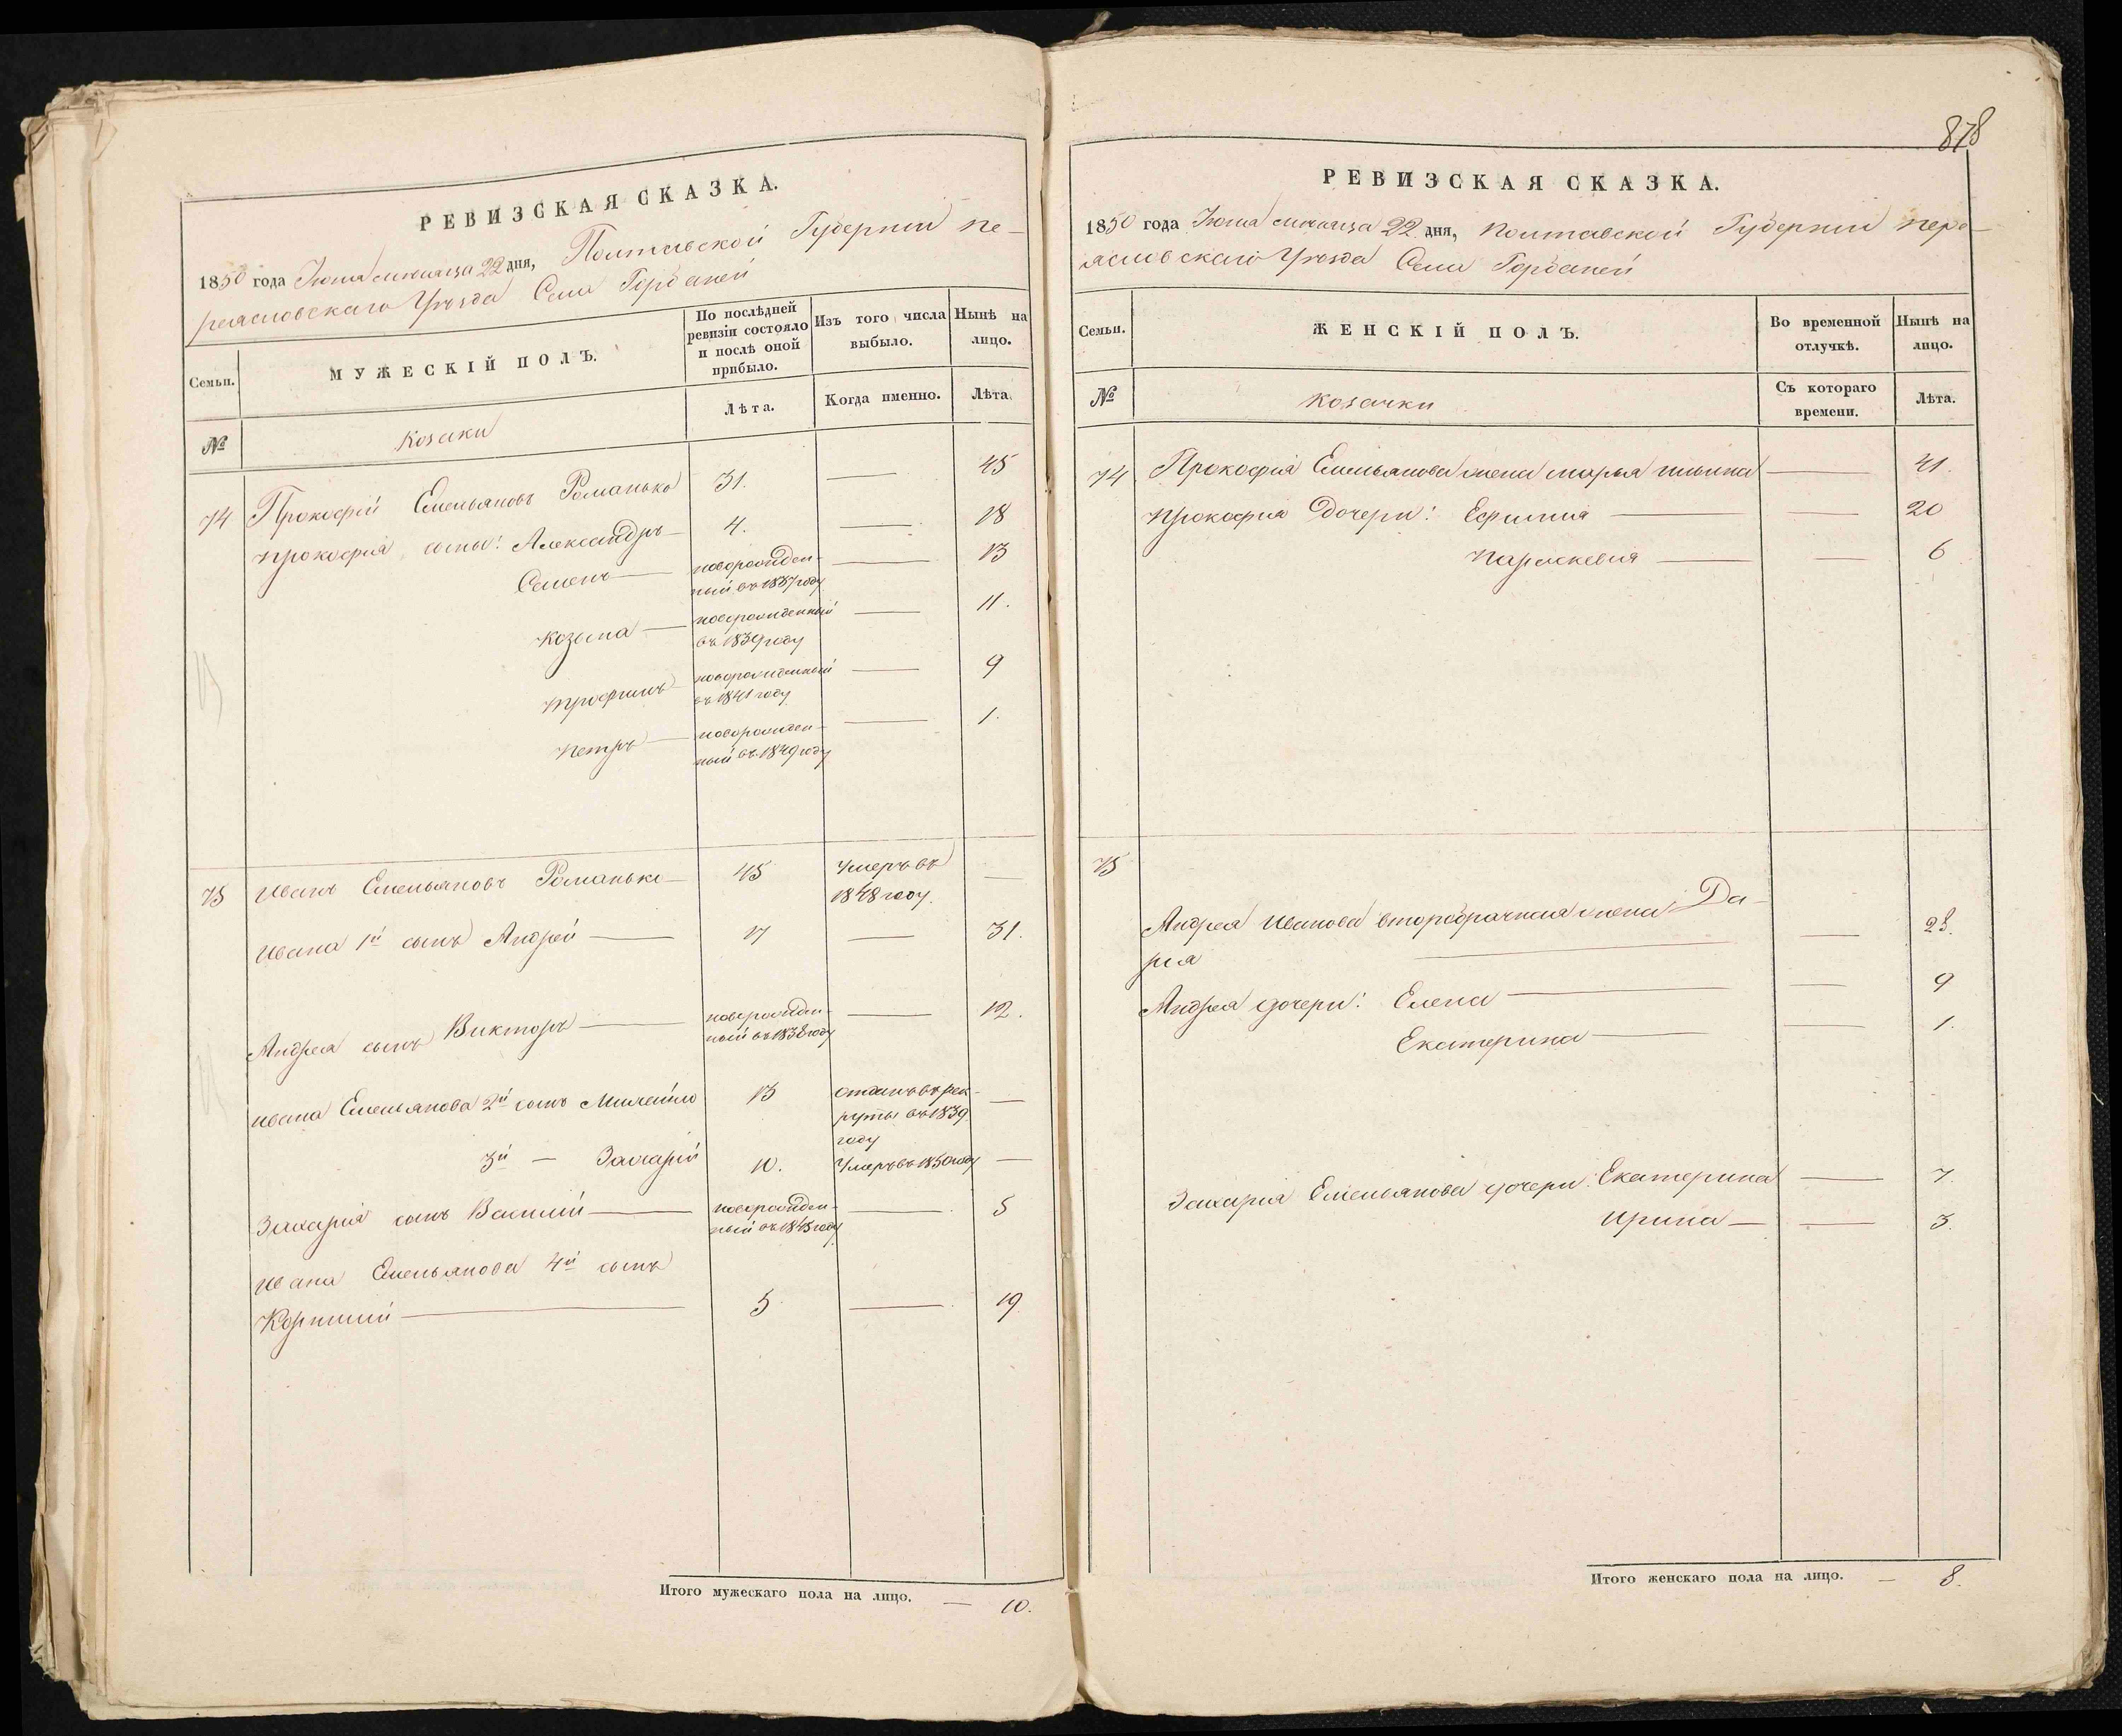 РЕВИЗСКАЯ СКАЗКА.
1850 года Июня месяца 22 дня, Полтавской Губернии Пе-
реясловскаго Уезда Села Горбаней
Семьи.
МУЖЕСКІЙ ПОЛЪ.
По послѣдней ревизіи состояло и послѣ оной прибыло.
Изъ того числа выбыло.
Нынѣ на лицо.
№
Козаки
Лѣта.
Когда именно.
Лѣта.
74 Прокофій Емельяновъ Романько 31. — 45
Прокофія сыны: Александръ — 4. — 18
Семенъ — новорожден-ный въ 1837 году — 13
Козьма — новорожденный въ 1839 году — 11.
Трофимъ — новорожденный въ 1841 году — 9
Петръ — новорожден-ный въ 1849 году — 1.
75 Иванъ Емельяновъ Романько — 45 Умеръ въ 1848 году. —
Ивана 1й сынъ Андрей — 17 — 31.
Андрея сынъ Викторъ — новорожден-ный въ 1838 году — 12.
Ивана Емельянова 2й сынъ Михайло 13 отданъ въ рек-руты въ 1839 году —
3й — Захарій 10. Умеръ въ 1850 году —
Захарія сынъ Василій — новорожден-ный въ 1845 году — 5
Ивана Емельянова 4й сынъ
Корнилій — 5 — 19
Итого мужескаго пола на лицо. — 10.
878
РЕВИЗСКАЯ СКАЗКА.
1850 года Июня месяца 22 дня, Полтавской Губернии Пере-
ясловскаго Уезда Села Горбаней
Семьи.
ЖЕНСКІЙ ПОЛЪ.
Во временной отлучкѣ.
Нынѣ на лицо.
№
Козачки
Съ котораго времени.
Лѣта.
74 Прокофія Емельянова жена Марья Ильина — 41.
Прокофія дочери: Ефимія — — 20
Параскевія — — 6
75
Андрея Иванова второбрачная жена Да-
рія — — 28.
Андрея дочери: Елена — — 9
Екатерина — — 1.
Захарія Емельянова дочери: Екатерина — 7.
Ирина — — 3.
Итого женскаго пола на лицо. — 8.